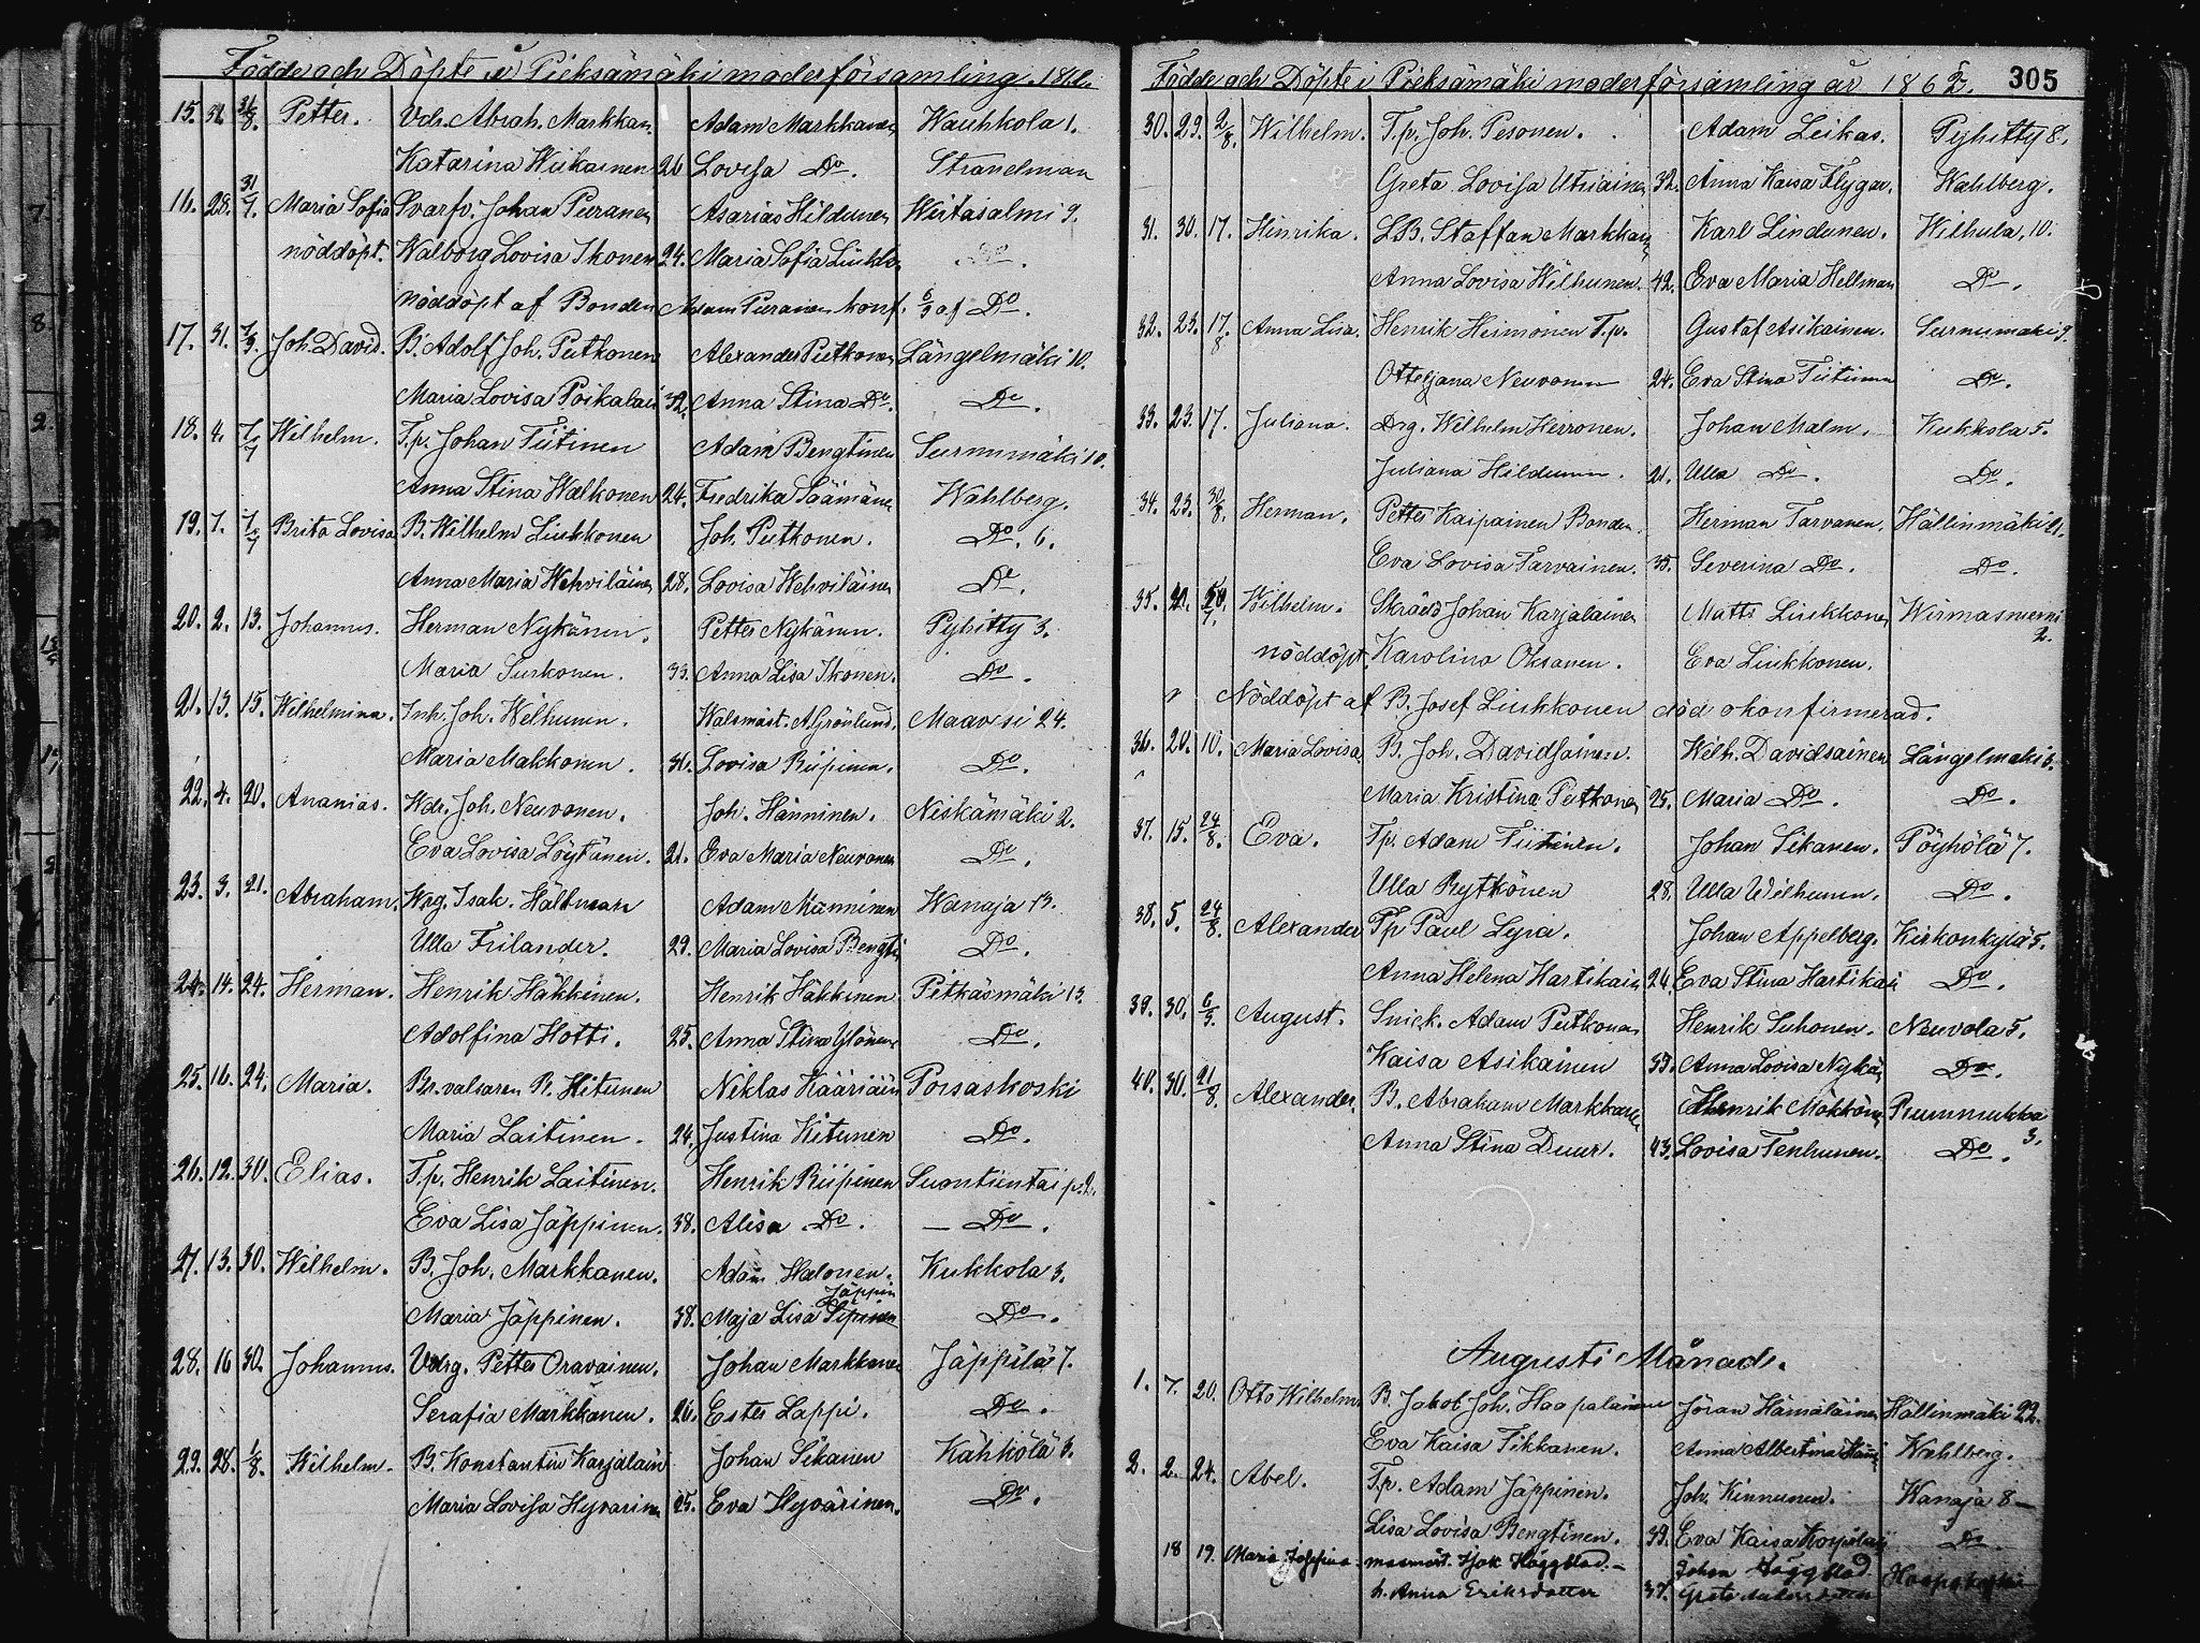 Födde och Döpte i Pieksämäki moderförsamling. 1862.
15. 31/8. Petter. Vdr. Abrah. Markkan. Adam Markkanen Wauhkola 1.
Katarina Wiikainen 26 Lovisa Do. Strandman
16. 28. 31/7. Maria Sofia Svarfv. Johan Puranen Asarias Hildunen Wirtasalmi 9.
nöddöpt. Walborg Lovisa Ikonen 24. Maria Sofia
nöddöpt af Bonden Adam Puranen konf. af Do.
17. 31. Joh. David. B. Adolf Joh. Putkonen Alexander Putkonen Längelmäki 10.
Maria Lovisa Poikalai 32. Anna Stina Do. Do.
18. 4. 7/7 Wilhelm. T.p. Johan Tiitinen Adam Bengtinen Surnumäki 10.
Anna Stina Walkonen 24. Fredrika Wahlberg.
19. 7. 7/7 Brita Lovisa B. Wilhelm Liukkonen Joh. Putkonen. Do. 6.
Anna Maria Wehviläinen 28. Lovisa Wehviläinen Do.
20. 2. 13. Johannes. Herman Nykänen. Petter Nykänen. Pyhitty 3.
Maria Surkonen. 33. Anna Lisa Ikonen. Do.
21. 13. 15. Wilhelmina. Inh. Joh. Welhunen. Walsmäst. A. Grönlund. Maavesi 24.
Maria Makkonen. 31. Lovisa Riipinen. Do.
22. 4. 20. Ananias. Wdr. Joh. Neuvonen. Joh. Hänninen. Niskämäki 2.
Eva Lovisa Löytänen. 21. Eva Maria Neuvonen Do.
23. 3. 21. Abraham. Wrg. Isak. Hältman Adam Manninen Wanaja 13.
Ulla Frilander. 29. Maria Lovisa Bengti Do.
24. 14. 24. Herman. Henrik Häkkinen. Henrik Häkkinen Pitkäsmäki 13.
Adolfina Hotti. 25. Anna Stina Ylönen Do.
25. 16. 24. Maria. Br. valsaren P. Hitunen Niklas Kääriäin Porsaskoski
Maria Laitinen. 24. Justina Kitunen Do.
26. 12. 30. Elias. T.p. Henrik Laitinen. Henrik Riipinen Suontientai p. 2.
Eva Lisa Jäppinen. 38. Alisa Do. Do.
27. 13. 30. Wilhelm. B. Joh. Markkanen. Adam Halonen. Kukkola 3.
Jäppin
Maria Jäppinen. 38. Maja Lisa Sipinen Do.
28. 16 30. Johannes. Vdrg. Petter Oravainen. Johan Markkanen Jäppilä 7.
Serafia Markkanen. 26. Ester Lappi. Do.
29. 28. 1/8. Wilhelm. B. Konstantin Karjalain Johan Sikanen Kähkölä 3.
Maria Lovisa Hyvärine 25. Eva Hyvärinen. Do.
Födde och Döpte i Pieksämäki moderförsamling år 1862. 305
30. 29. 2/8. Wilhelm. T.p. Joh. Pesonen. Adam Leikas. Pyhitty 8.
Greta Lovisa Utriainen 32. Anna Kaisa Flygar. Wahlberg.
31. 30. 17. Hinrika. LB. Staffan Markkan Karl Lindunen. Wilhula. 10.
Anna Lovisa Wilhunen. 42. Eva Maria Hellman Do.
32. 23. 17/8 Anna Lisa. Henrik Heimonen T.p. Gustaf Asikainen. Surnumäki 9.
Otteljana Neuvonen 24. Eva Stina Tiitinen Do.
33. 23. 17. Juliana. Drg. Wilhelm Herronen. Johan Malm. Kukkola 5.
Juliana Hildunen. 21. Ulla Do. Do.
34. 23. 30/8. Herman. Petter Kaipainen Bonden. Herman Tarvanen. Hällinmäki
Eva Lovisa Tarvainen. 35. Severina Do. Do.
35. Wilhelm. Skrädd Johan Karjalainen Matts Liukkonen Wirmasniemi
2.
nöddöpt Karolina Oksanen. Eva Liukkonen.
Nöddöpt af B. Josef Liukkonen död okonfirmerad.
36. 20. 10. Maria Lovisa B. Joh. Davidsainen. Wilh. Davidsainen Längelmäki 3.
Maria Kristina Putkonen 25. Maria Do. Do.
37. 15. 24/8. Eva. T.p. Adam Tiitinen. Johan Sikanen. Pöyhölä 7.
Ulla Rytkönen 28. Ulla Wilhunen. Do.
38. 5. 24/8. Alexander T.p. Paul Lyra. Johan Appelberg. Kirkonkylä 5.
Anna Helena Hartikain 24. Eva Stina Hartikai Do.
39. 30. 6/9. August. Snick. Adam Putkonen Henrik Suhonen. Neuvola 5.
Kaisa Asikainen 39. Anna Lovisa Nykän Do.
40. 30. 21/8. Alexander. B. Abraham Markkanen Henrik Mökkön Rummukka
3.
Anna Stina Duur. 43. Lovisa Tenhunen. Do.
Augusti Månad.
1. 7. 20. Otto Wilhelm B. Jakob Joh. Haapalainen Jöran Hämäläinen Hällinmäki 22.
Eva Kaisa Tikkanen. Anna Albertina Wahlberg.
2. 2. 24. Abel. T.p. Adam Jäppinen. Joh. Kinnunen. Wanaja 8
Lisa Lovisa Bengtinen. 39. Eva Kaisa Do.
18 19. Maria Josefina Häggblad. Johan Häggblad
h. Anna Eriksdotter 37. Greta